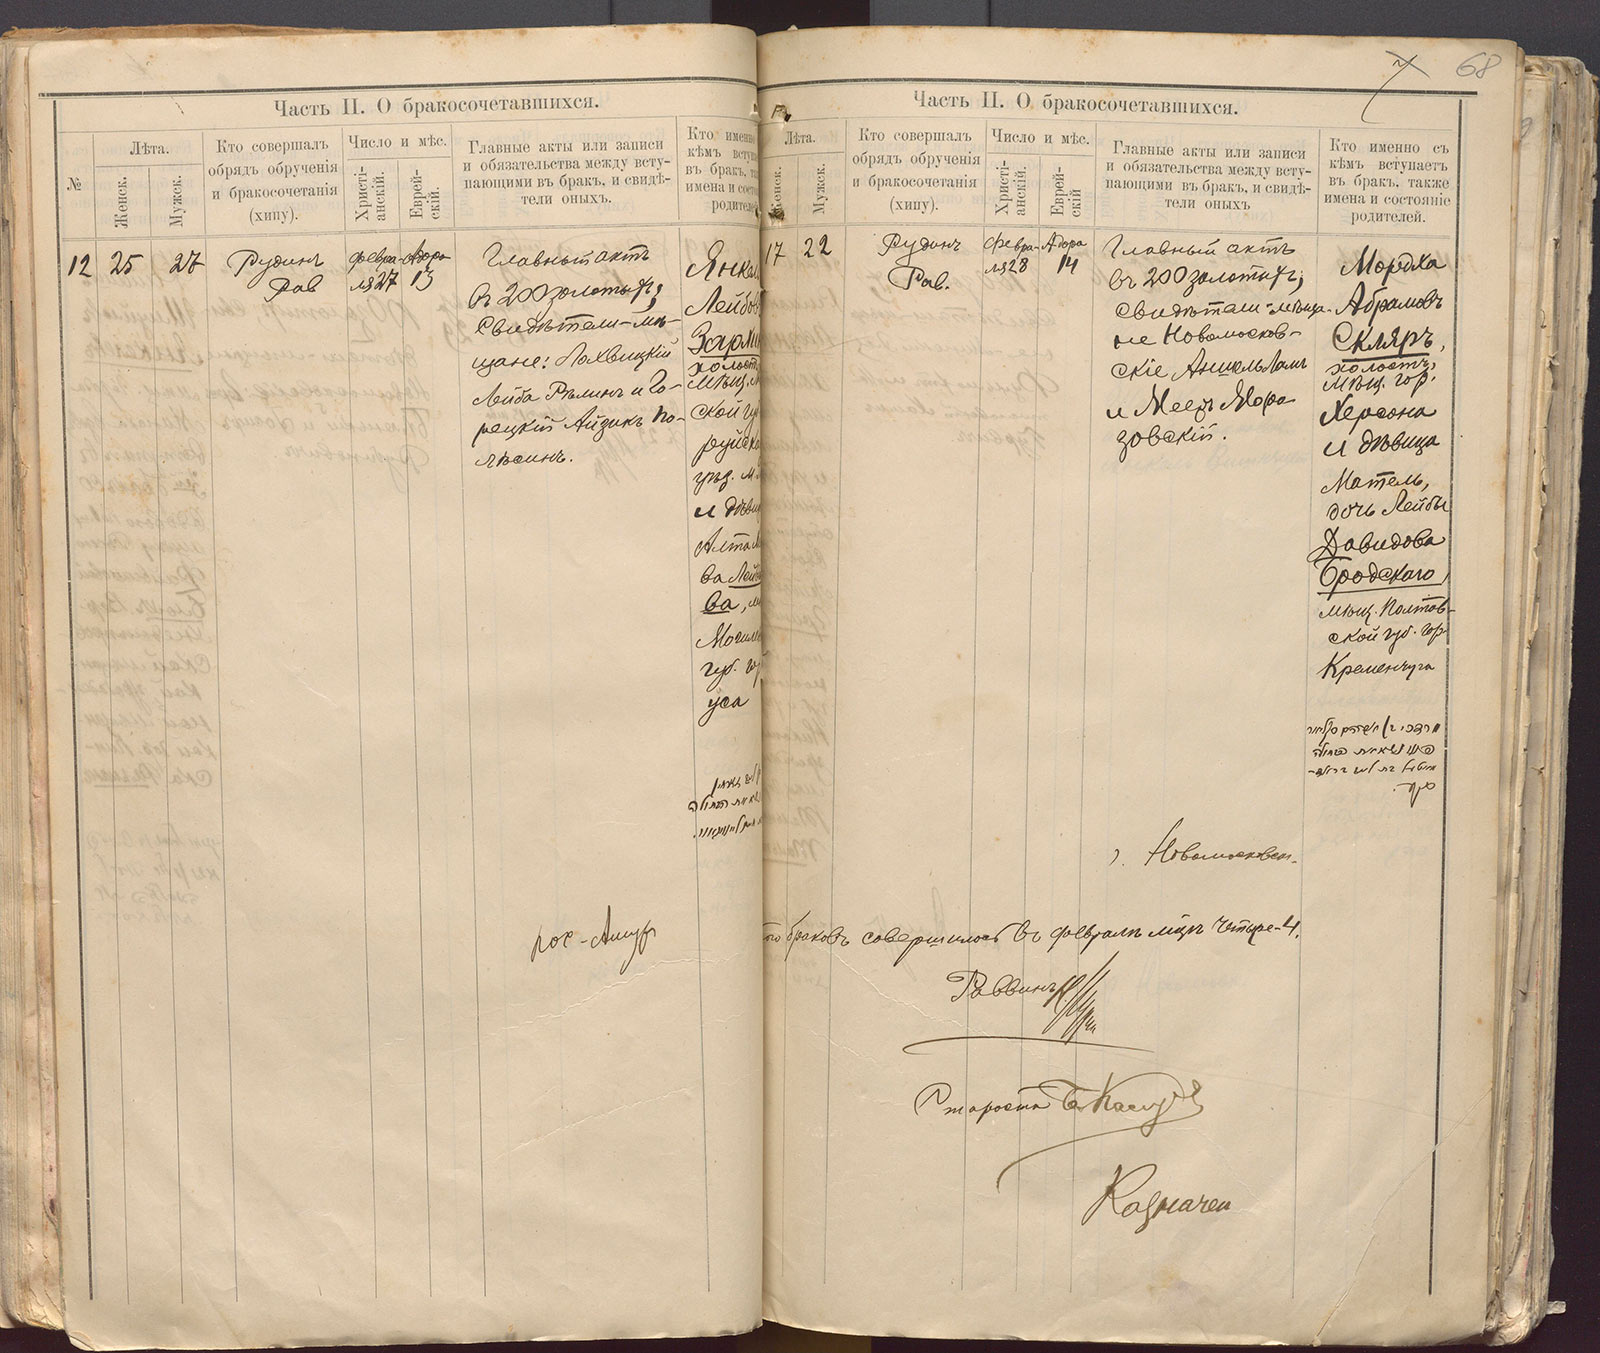 Часть II. О бракосочетавшихся.
№
Лѣта.
Женск.
Мужск.
Кто совершалъ
обрядъ обрученія
и бракосочетанія
(хипу).
Число и мѣс.
Христі-
анскій.
Еврей-
скій.
Главные акты или записи
и обязательства между всту-
пающими въ бракъ, и свидѣ-
тели оныхъ.
Кто именно
кѣмъ вступа
въ бракъ, та
имена и состо
родителе
12
25
27
Рудинъ
Рав
Февра-
ля 27
Адара
13
Главный актъ
въ 200 золотыхъ;
Свидѣтели-мѣ-
щане: Лохвицкій
Лейба Рѣлинъ и Го-
рецкій Айзикъ По-
лѣсинъ.
Янкел
Лейбов
Зархин
холост
мѣщ.
ской гу
руйска
уѣзд. м.
и дѣви
Алта
ва Лейб
ва, м
Могил
губ. го
уса
Часть II. О бракосочетавшихся.
68
Лѣта.
Женск.
Мужск.
Кто совершалъ
обрядъ обрученія
и бракосочетанія
(хипу).
Число и мѣс.
Христі-
анскій.
Еврей-
скій
Главные акты или записи
и обязательства между всту-
пающими въ бракъ, и свидѣ-
тели оныхъ
Кто именно съ
кѣмъ вступаетъ
въ бракъ, также
имена и состояніе
родителей.
17
22
Рудинъ
Рав.
Февра-
ля 28
Адара
14
Главный актъ
въ 200 золотыхъ;
свидѣтели-мѣща-
не Новомосков-
скіе Аншель Ламъ
и Мееръ Моро
зовскій.
Мордха
Абрамовъ
Скляръ,
холостъ,
мѣщ. гор.
Херсона
и дѣвица
Матель,
дочь Лейбы
Давидова
Бродскаго,
мѣщ. Полтав-
ской губ. гор.
Кременчуга
г. Новомосковск.
браковъ совершилось въ Февралѣ мцѣ четыре-4.
Раввинъ
Староста
Казначей